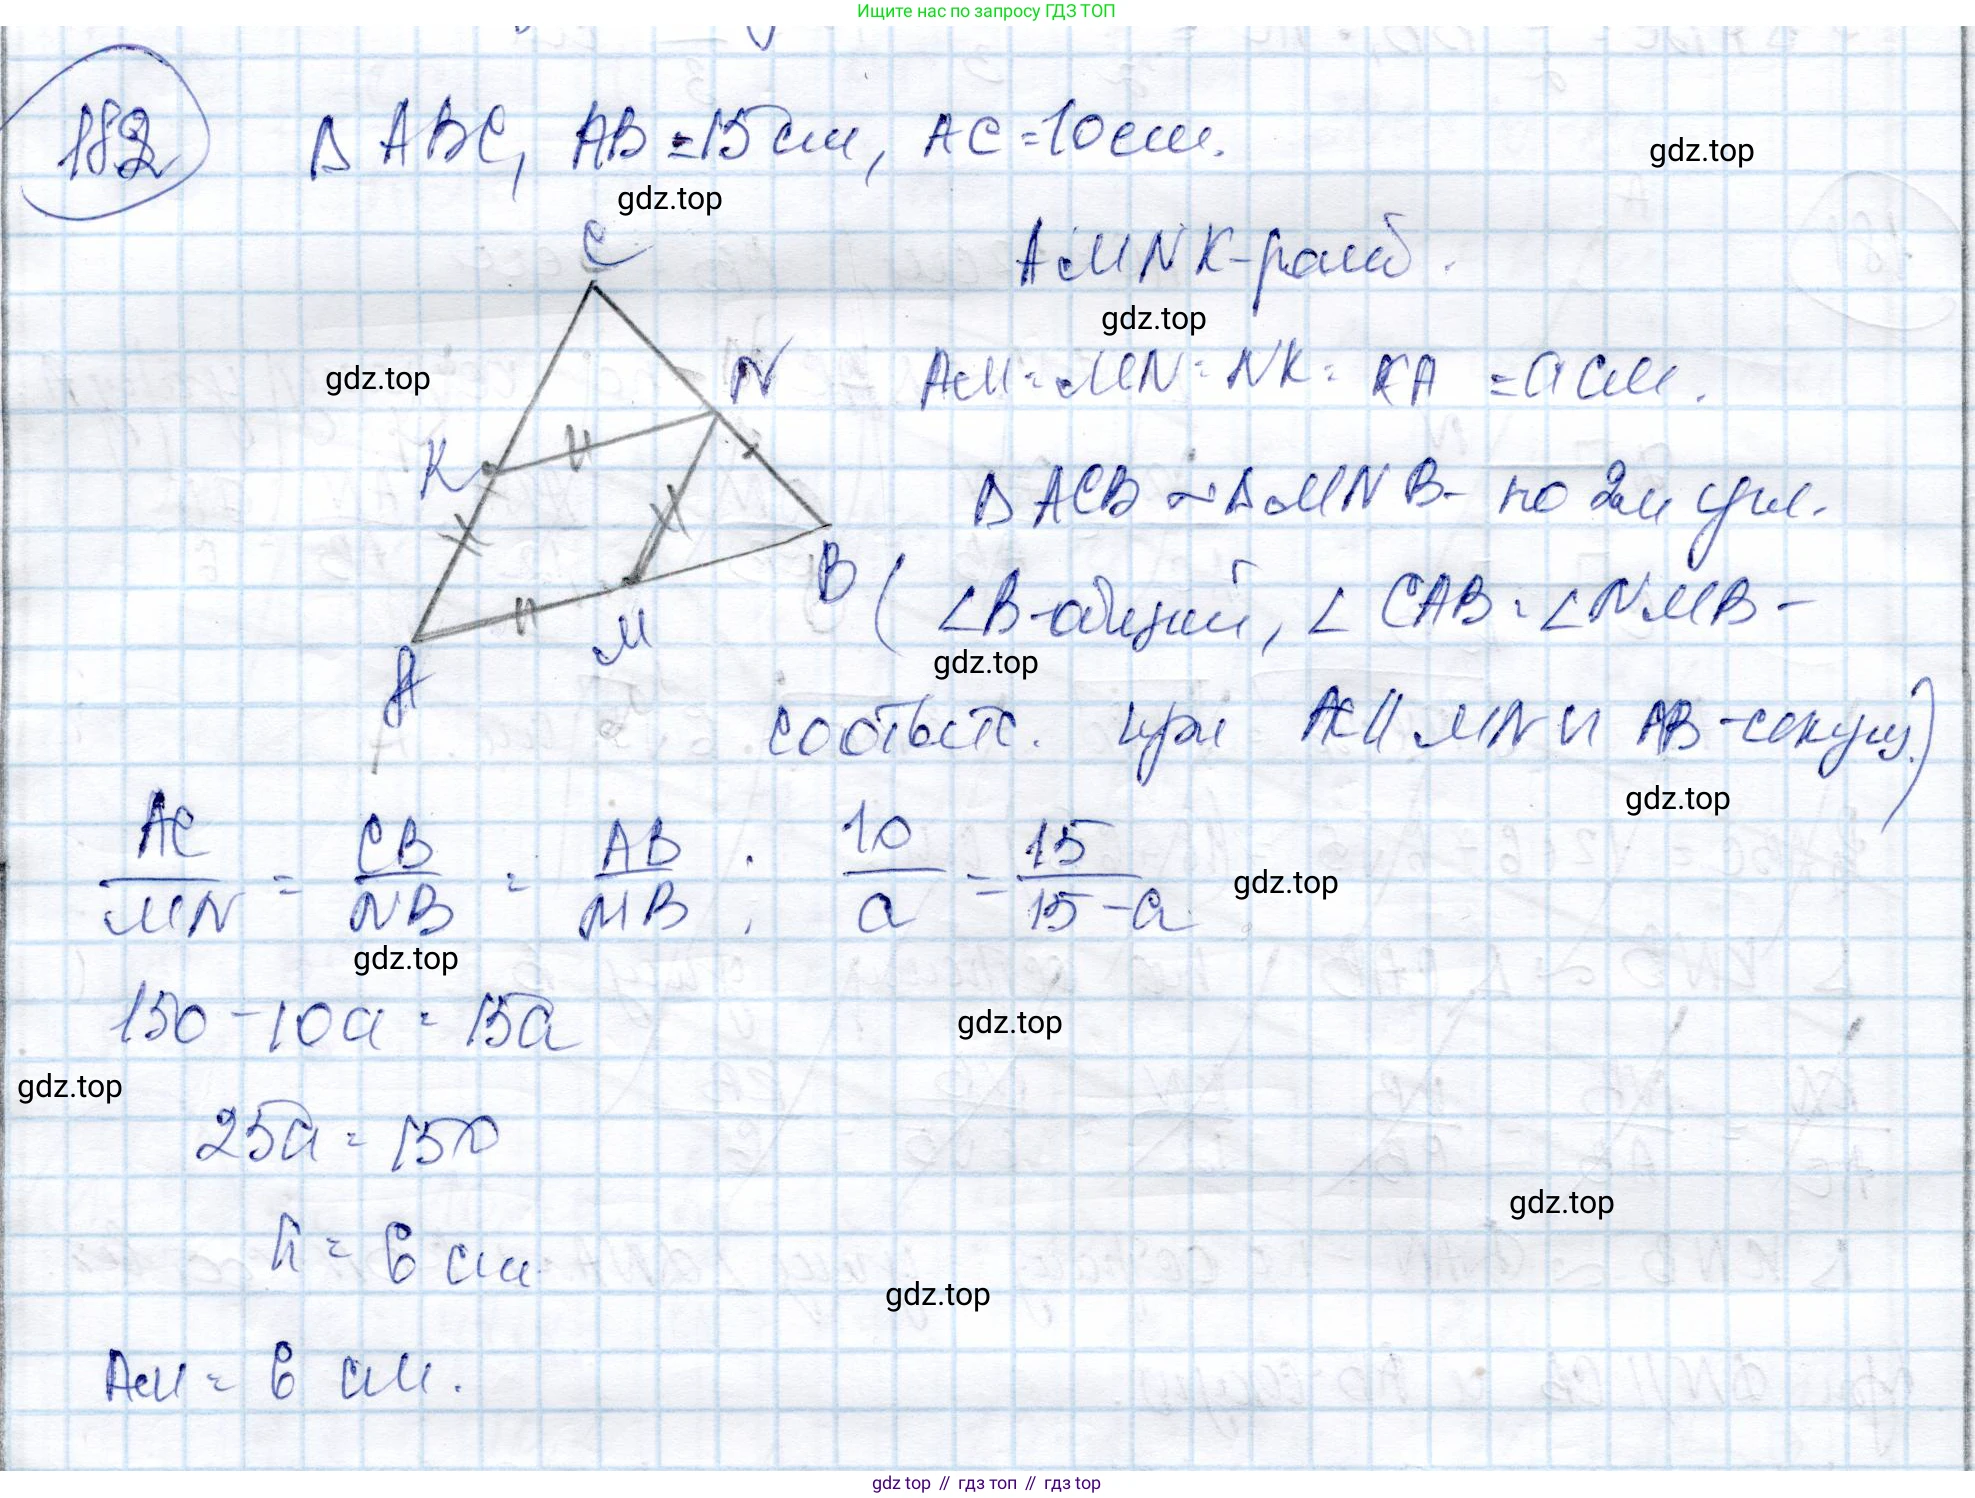 Ищите нас по запросу ГДЗ ТОП
182
Δ ABC, AB = 15 см, AC = 10 см.
gdz.top
gdz.top
C
AMNK - ромб.
gdz.top
gdz.top
N
AM = MN = NK = KA = a см.
K
Δ ACB ~ Δ MNB - по 2м угл.
B
(∠B - общий, ∠CAB = ∠NMB -
M
gdz.top
A
соответс. при AC || MN и AB - секущ.)
gdz.top
AC/MN = CB/NB = AB/MB ; 10/a = 15/15-a
gdz.top
gdz.top
150 - 10a = 15a
gdz.top
gdz.top
25a = 150
gdz.top
a = 6 см
gdz.top
AM = 6 см.
gdz top // гдз топ // гдз top